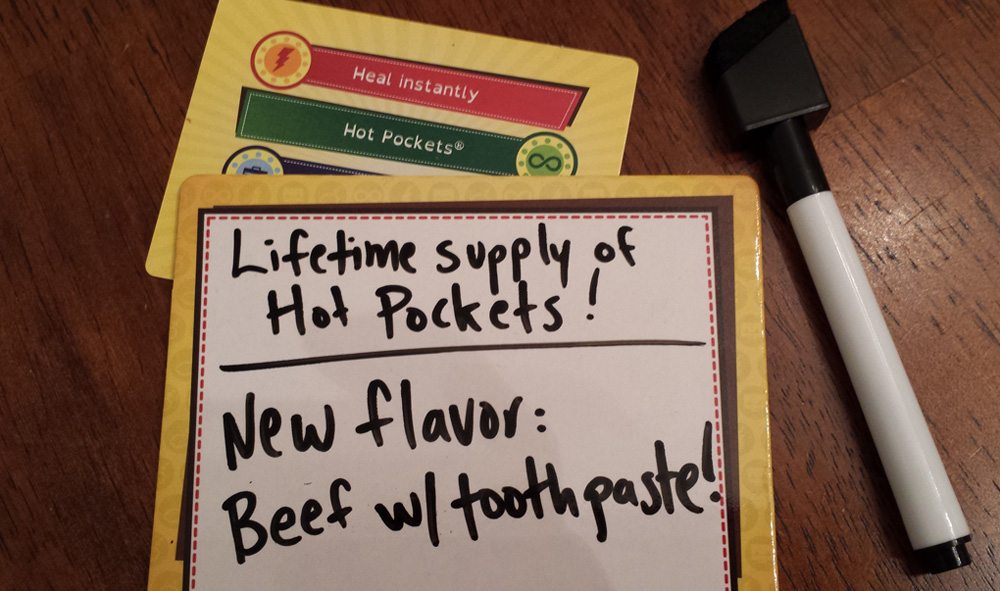 Heal instantly
Hot Pockets®
Lifetime supply of
Hot Pockets!
New flavor:
Beef w/ toothpaste!